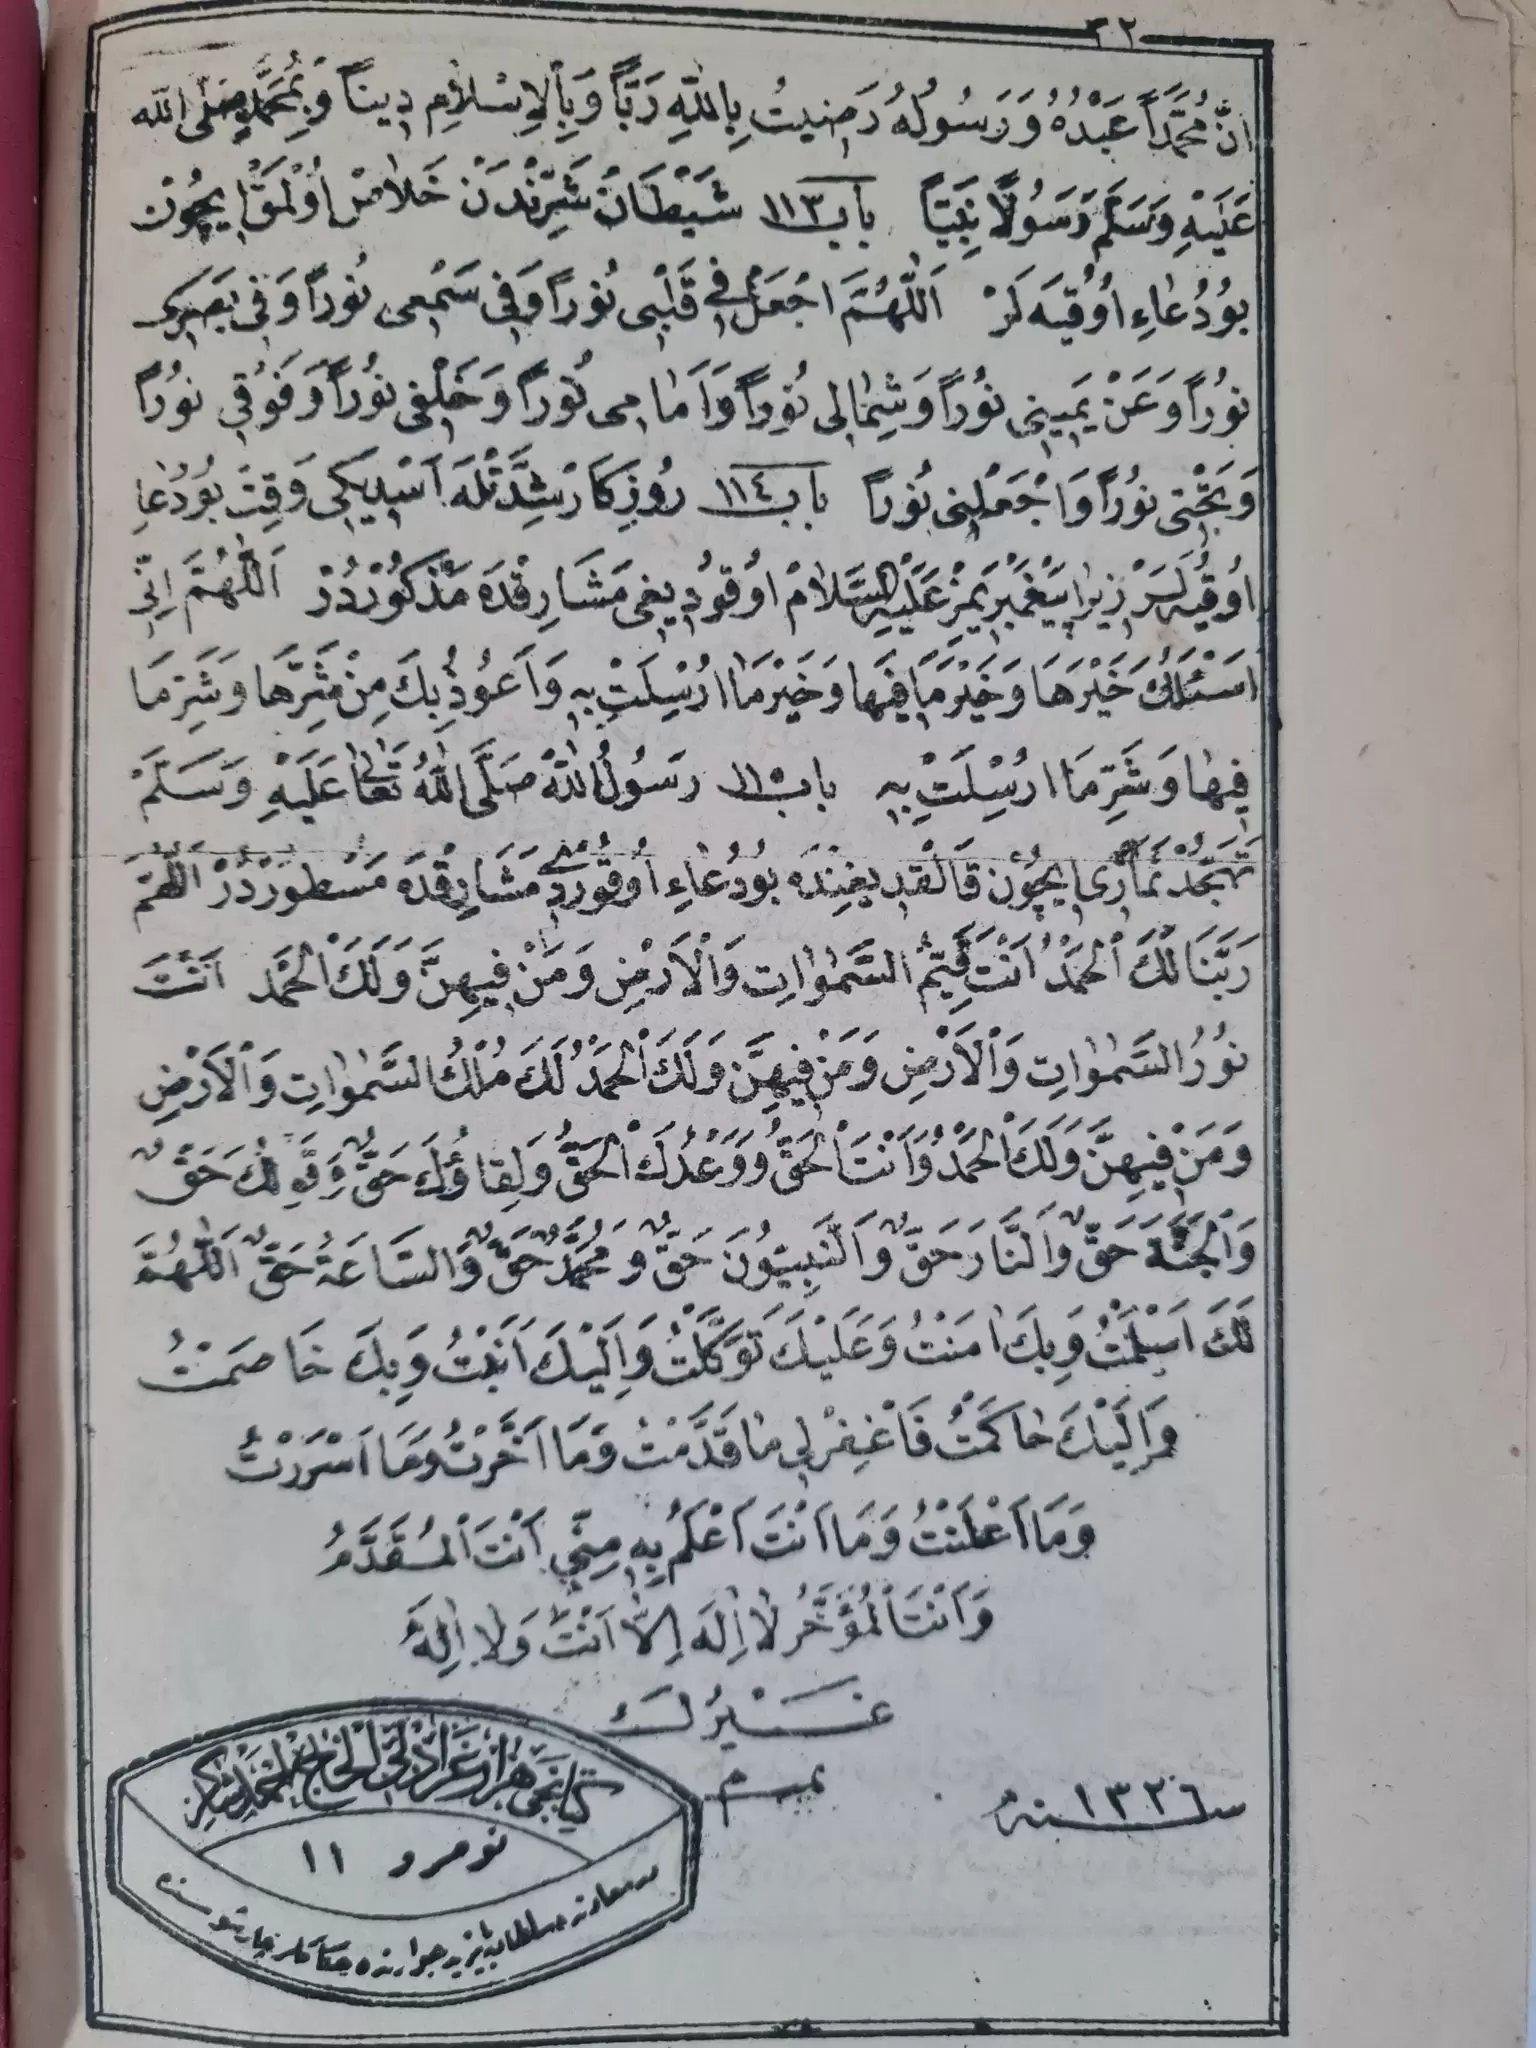 ٣٢
اَنَّ مُحَمَّدًا عَبْدُهُ وَرَسُولُهُ رَضِيتُ بِاللّٰهِ رَبًّا وَبِالْاِسْلَامِ دِينًا وَبِمُحَمَّدٍ صَلَّى اللّٰه
عَلَيْهِ وَسَلَّمَ رَسُولًا نَبِيًّا باب ١١٣ شَيْطَانْ شَرِّنْدَنْ خَلَاصْ اُولْمَقْ ايچُونْ
بُودُعَاءِ اُوقُيَهلَرْ اَللّٰهُمَّ اجْعَلْ فِي قَلْبِى نُورًا وَفِى سَمْعِى نُورًا وَفِى بَصَرِى
نُورًا وَعَنْ يَمِينِى نُورًا وَشِمَالِى نُورًا وَاَمَامِى نُورًا وَخَلْفِى نُورًا وَفَوْقِى نُورًا
وَتَحْتِى نُورًا وَاجْعَلْنِى نُورًا باب ١١٤ رُوزِكَارْ شِدَّتْلَه اَسْدِيكِى وَقِتْ بُودُعَاءِ
اُوقُيَه لَرْ زِيرَا پَيْغَمْبَرِيمِزْ عَلَيْهِ السَّلَامْ اُوقُودِيغِى مَشَارِقْدَه مَذْكُورْدُرْ اَللّٰهُمَّ اِنِّى
اَسْئَلُكَ خَيْرَهَا وَخَيْرَ مَا فِيهَا وَخَيْرَ مَا اُرْسِلَتْ بِهِ وَاَعُوذُ بِكَ مِنْ شَرِّهَا وَشَرِّ مَا
فِيهَا وَشَرِّ مَا اُرْسِلَتْ بِهِ باب ١١٥ رَسُولُ اللّٰه صَلَّى اللّٰهُ تَعَالَى عَلَيْهِ وَسَلَّمْ
تَهَجُّدْ نَمَازِى ايچُونْ قَالْقْدِيغِنْدَه بُودُعَاءِ اُوقُورْدِى مَشَارِقْدَه مَسْطُورْدُرْ اَللّٰهُمَّ
رَبَّنَا لَكَ الْحَمْدُ اَنْتَ قَيِّمُ السَّمٰوَاتِ وَالْاَرْضِ وَمَنْ فِيهِنَّ وَلَكَ الْحَمْدُ اَنْتَ
نُورُ السَّمٰوَاتِ وَالْاَرْضِ وَمَنْ فِيهِنَّ وَلَكَ الْحَمْدُ لَكَ مُلْكُ السَّمٰوَاتِ وَالْاَرْضِ
وَمَنْ فِيهِنَّ وَلَكَ الْحَمْدُ وَاَنْتَ الْحَقُّ وَوَعْدُكَ الْحَقُّ وَلِقَاؤُكَ حَقٌّ وَقَوْلُكَ حَقٌّ
وَالْجَنَّةَ حَقٌّ وَالنَّارَ حَقٌّ وَالنَّبِيُّونَ حَقٌّ وَمُحَمَّدٌ حَقٌّ وَالسَّاعَةُ حَقٌّ اَللّٰهُمَّ
لَكَ اَسْلَمْتُ وَبِكَ اٰمَنْتُ وَعَلَيْكَ تَوَكَّلْتُ وَاِلَيْكَ اَنَبْتُ وَبِكَ خَاصَمْتُ
وَاِلَيْكَ حَاكَمْتُ فَاغْفِرْلِى مَا قَدَّمْتُ وَمَا اَخَّرْتُ وَمَا اَسْرَرْتُ
وَمَا اَعْلَنْتُ وَمَا اَنْتَ اَعْلَمُ بِهِ مِنِّى اَنْتَ الْمُقَدَّمُ
وَاَنْتَ الْمُؤَخَّرُ لَا اِلٰهَ اِلَّا اَنْتَ وَلَا اِلٰهَ
غَيْرُكَ
سنه ١٣٢٦
كتابجى هزارغرادلى الحاج احمد شاكر
نومرو ١١
درسعادتده سلطان بايزيد جوارنده حكاكلر چارشوسنده